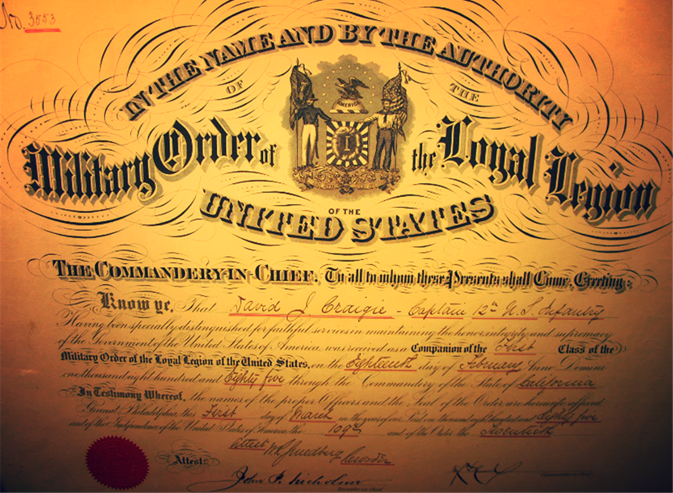 No. 3553
IN THE NAME AND BY THE AUTHORITY
OF THE
Military Order of the Loyal Legion
OF THE
UNITED STATES
THE COMMANDERY-IN-CHIEF. To all to whom these Presents shall Come, Greeting:
Know ye, That David J. Craigie - Captain 12th U.S. Infantry
Having been specially distinguished for faithful services in maintaining the honor, integrity and supremacy
of the Government of the United States of America was received as a Companion of the First Class of the
Military Order of the Loyal Legion of the United States, on the Eighteenth day of February Anno Domini
one thousand eight hundred and Eighty five through the Commandery of the State of California
In Testimony Whereof, the names of the proper Officers and the Seal of the Order are hereunto affixed
Philadelphia, this First day of March in the year of our Lord one thousand eight hundred and Eighty five
and of the Independence of the United States of America, the 109th and of the Order the Twentieth
Attest:
Recorder
John P. Nicholson